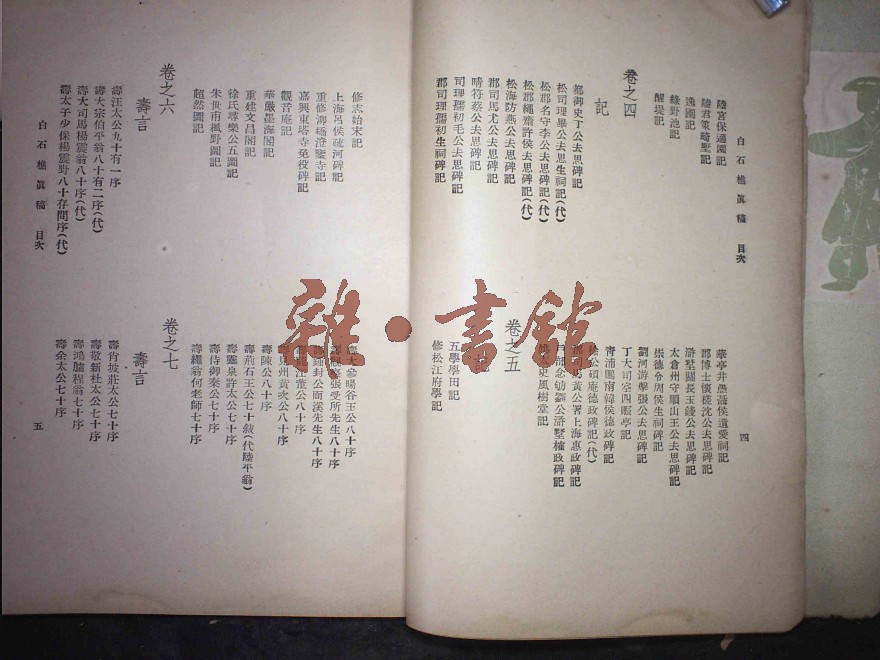 白石樵眞稿 目次
四
陸宮保適園記
陸君策畸墅記
逸圃記
綠野池記
醒堤記
卷之四
記
都御史丁公去思碑記
松司理畢公去思生祠記(代)
松郡名守李公去思碑記(代)
松郡繩齋許侯去思碑記(代)
松海防燕公去思碑記
郡司馬尤公去思碑記
晴符蔡公去思碑記
司理孺初毛公去思碑記
郡司理孺初生祠碑記
華亭井愚聶侯遺愛祠記
郡博士懷槎沈公去思碑記
滸墅關長玉錢公去思碑記
太倉州守順山王公去思碑記
崇德令周侯生祠碑記
劉河游擊張公去思碑記
丁大司空四暇亭記
靑浦鵬南韓侯德政碑記
徐公碩庵德政碑記(代)
黃公署上海惠政碑記
公滸墅榷政碑記
史風樹堂記
卷之五
記
五學學田記
修松江府學記
修志始末記
上海呂侯疏河碑記
重修泖橋澄鑒寺記
嘉興東塔寺免役碑記
觀音庵記
華嚴墨海閣記
重建文昌閣記
徐氏尋樂公五圖記
朱世甫楓野圖記
超然圖記
卷之六
壽言
壽汪太公九十有一序
壽大宗伯平翁八十有二序(代)
壽大司馬楊震翁八十序(代)
壽太子少保楊震野八十存問序(代)
大參暘谷王公八十序
張受所先生八十序
封公面溪先生八十序
龍江董公八十序
見州黃次公八十序
壽陳公八十序
壽荊石王公七十敍(代陸平翁)
壽繼泉許太公七十序
壽侍御秦公七十序
壽繩翁何老師七十序
卷之七
壽言
壽肖坡莊太公七十序
壽敬新杜太公七十序
壽鴻臚程翁七十序
壽余太公七十序
白石樵眞稿 目次
五
雜·書館